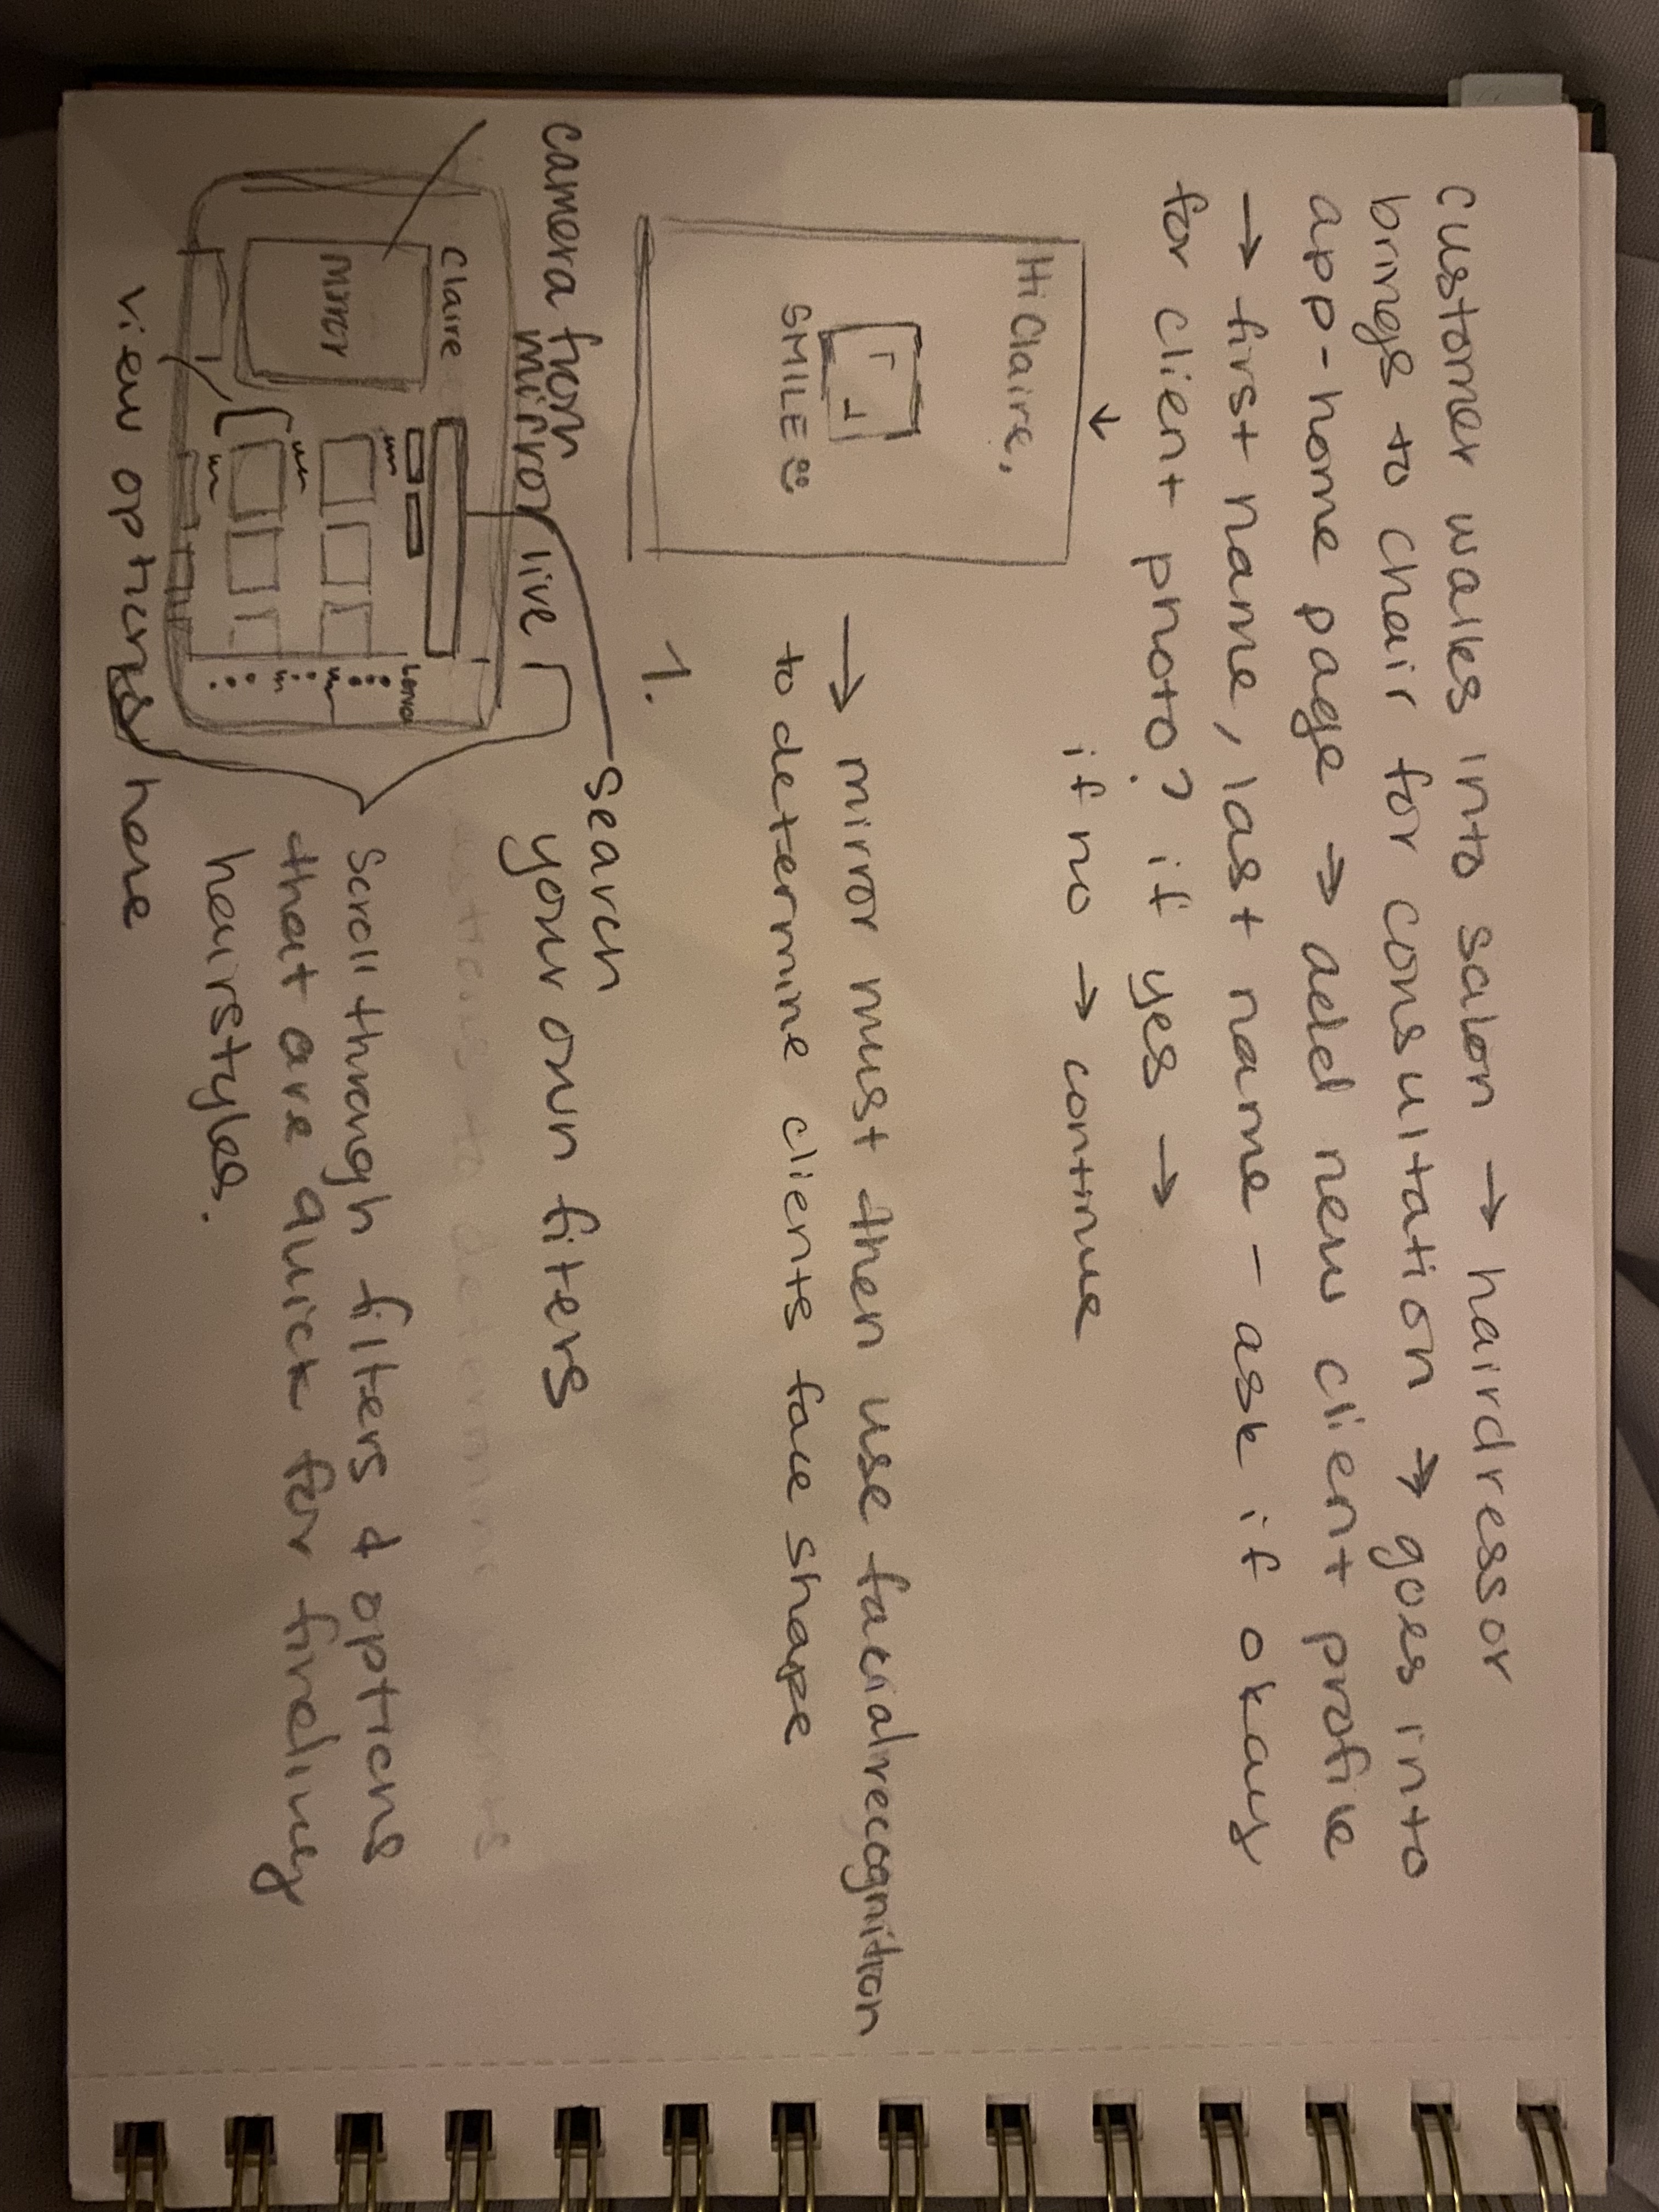 customer walks into salon → hairdressor
brings to chair for consultation → goes into
app - home page → add new client profile
→ first name, last name - ask if okay
for client photo? if yes →
if no → continue
Hi Claire,
SMILE
→ mirror must then use facial recognition
to determine clients face shape
1.
search
your own fiters
camera from
mirror live
Claire
mirror
scroll through filters & options
that are quick for finding
hairstyles.
view options here